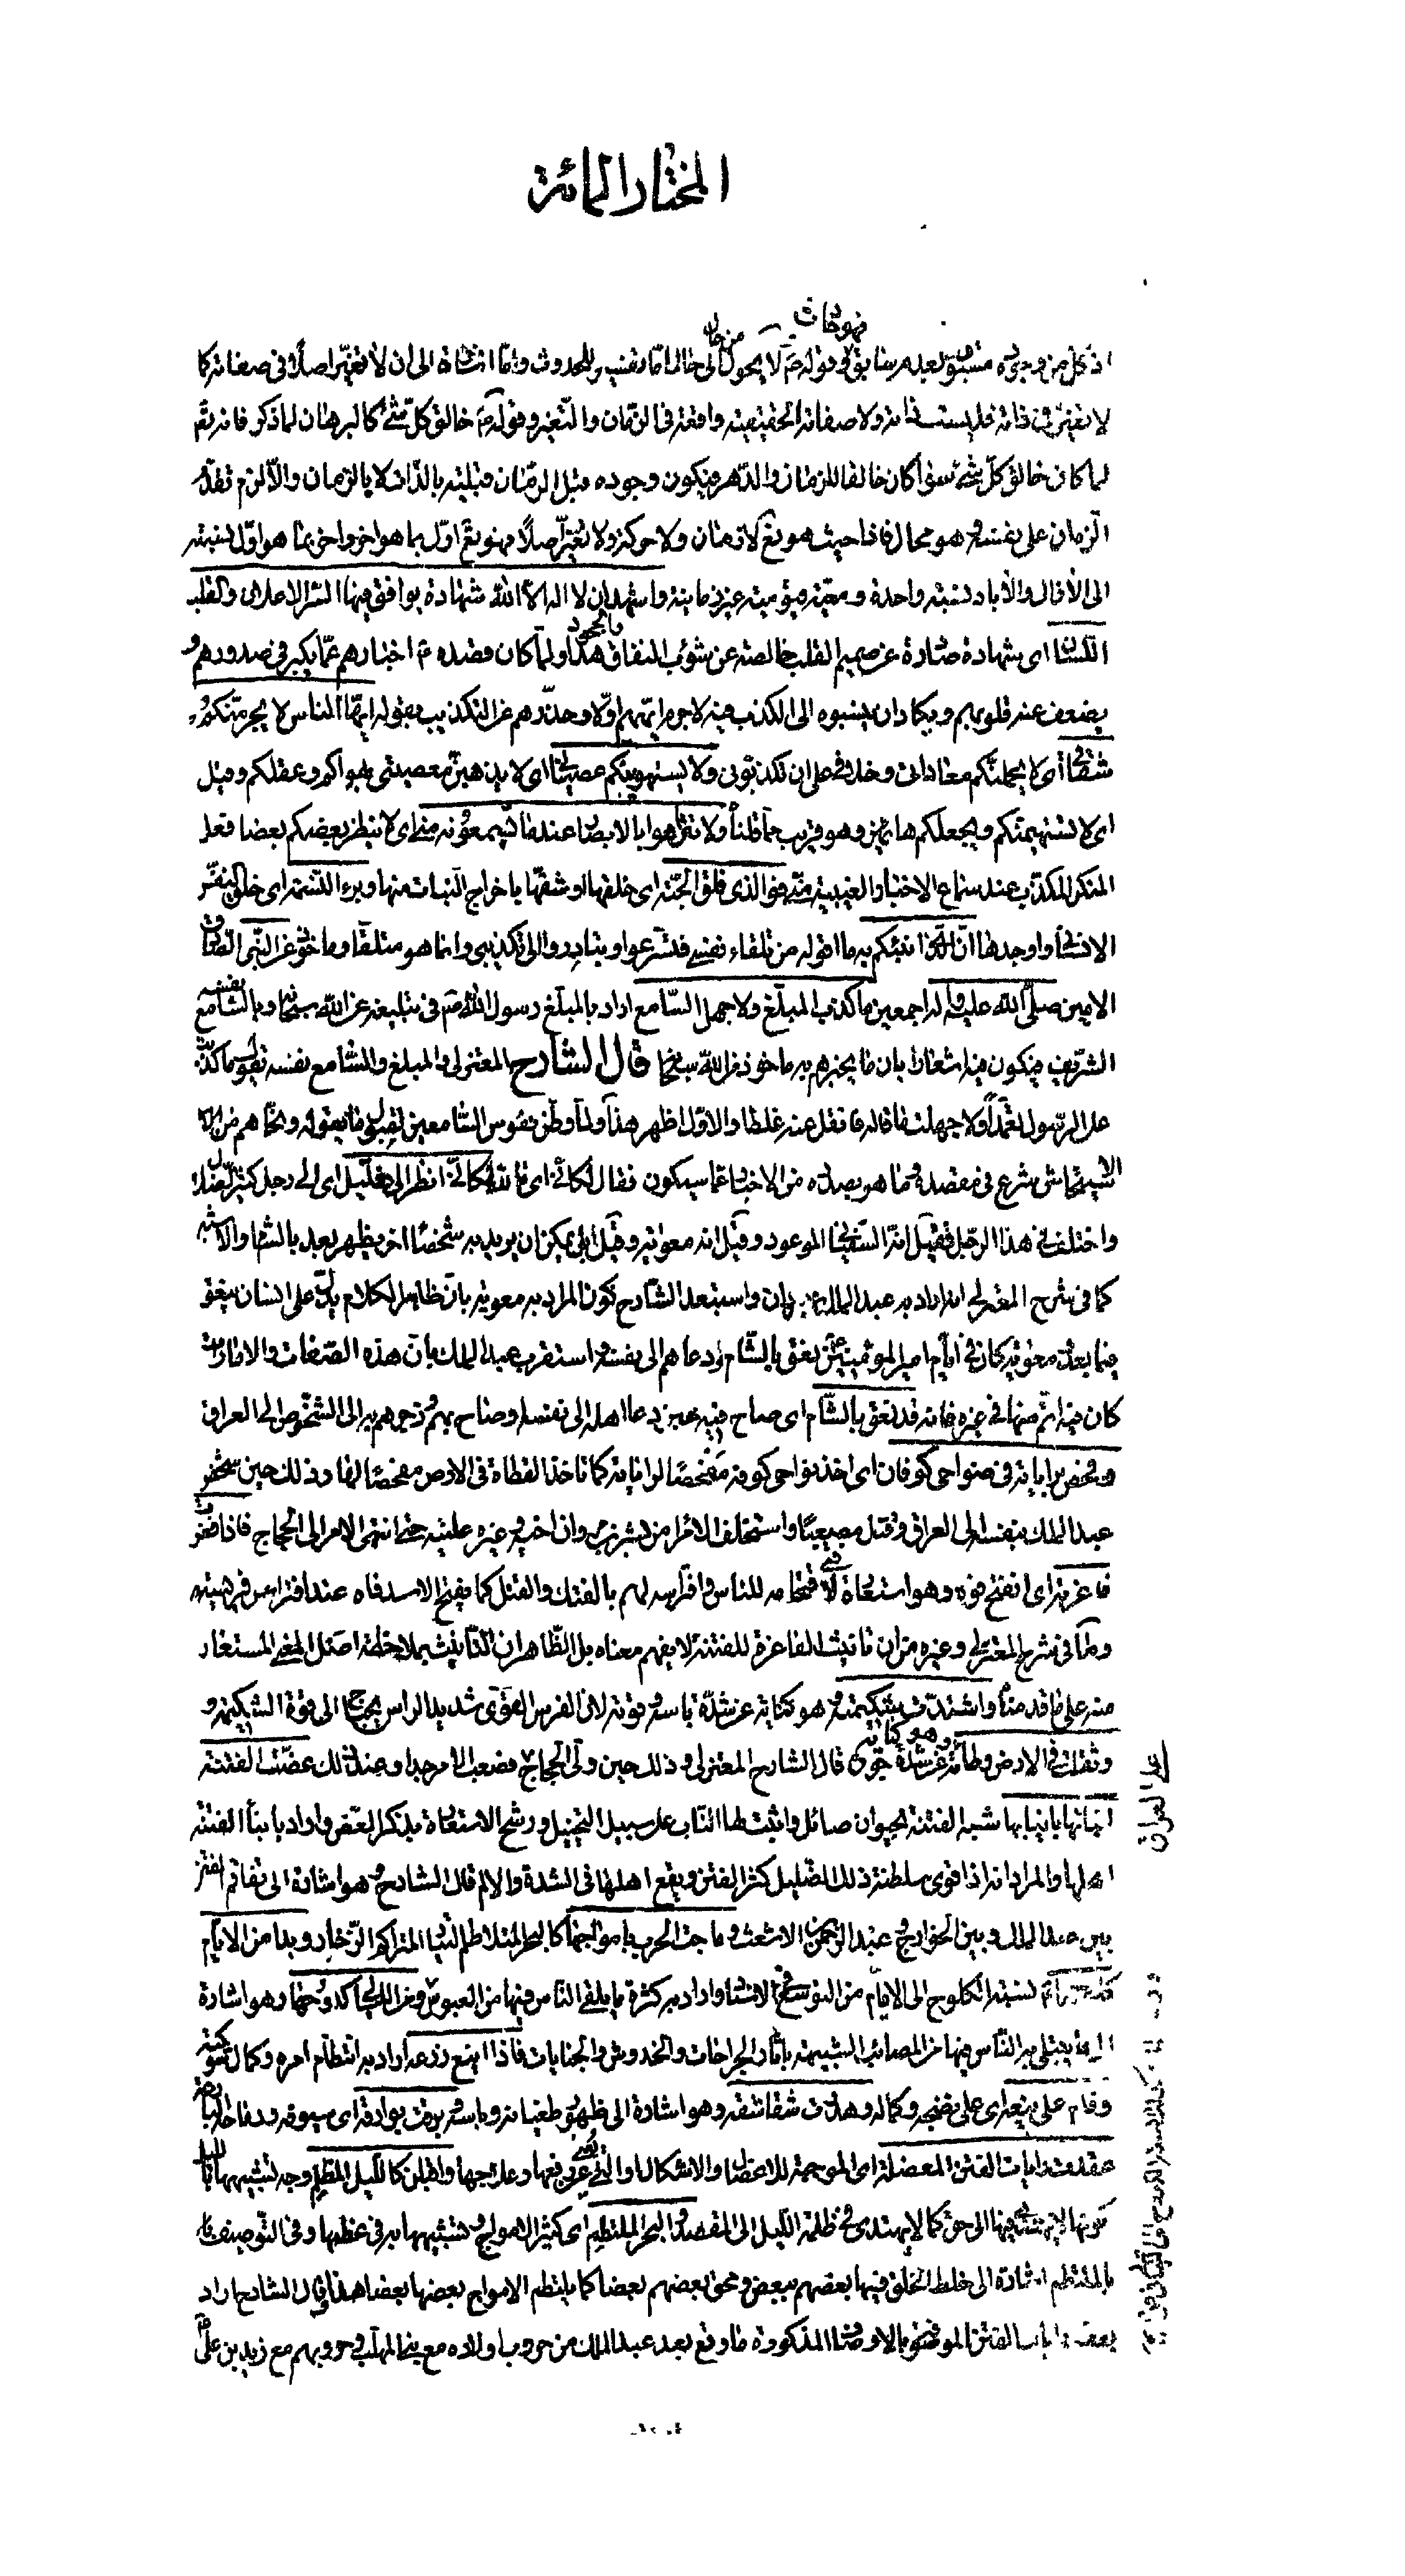 المختار المائة
فهو حادث
من حال
اذ كل من وجوده مسبوق بعدم سابق وقوله لا يحول الى حال اما تفسير للحدوث واما اشارة الى ان لا تغير اصلا في صفاته كما
لا تغير في ذاته فليست ذاته ولا صفاته الحقيقية واقعة في الزمان والتغير وقوله خالق كل شئ كالبرهان لما ذكر فانه تع
لما كان خالق كل شئ سواه كان خالقا للزمان والدهر فيكون وجوده قبل الزمان قبلية بالذات لا بالزمان والا لزم تقدم
الزمان على نفسه وهو محال فاذا حيث هو تع لا زمان ولا حركة ولا تغير اصلا فهو تع اول بما هو اخر واخر بما هو اول نسبته
الى الازال والاباد نسبة واحدة ومعية قيومية غير زمانية واشهد ان لا اله الا الله شهادة يوافق فيها السر الاعلان والقلب
اللسان اى شهادة صادرة عن صميم القلب خالصة عن شوب النفاق والجحود هذا ولما كان قصده ع اخبارهم عما يكبر في صدورهم و
يضعف عنه قلوبهم ويكادان ينسبوه الى الكذب فيه لاجرم اولا وحذرهم عن التكذيب بقوله ايها الناس لا يجرمنكم
شقاقى اى لا يحملنكم معاداتى وخلافى على ان تكذبونى ولا يستهوينكم عصيانى اى لا يذهبن معصيتى بهواكم وعقلكم وقيل
اى لا يستهيمنكم ويجعلكم هائمين وهو قريب مما قلنا ولا تتراموا بالابصار عند ما تسمعونه منى اى لا ينظر بعضكم بعضا فعل
المنكر المكذب عند سماع الاخبار الغيبية منه فو الذى فلق الحبة اى خلقها او شقها باخراج النبات منها وبرء النسمة اى خلق
الانسان واوجدها ان الذى انبئكم به ما اقوله من تلقاء نفسى فتسرعوا وتبادروا الى تكذيبى وانما هو متلقا وماخوذ عن النبى
الامين صلى الله عليه واله اجمعين ما كذب المبلغ ولا جهل السامع اراد بالمبلغ رسول الله ص في تبليغه عن الله سبحانه وبالسامع نفسه
الشريف فيكون فيه اشعار بان ما يخبرهم به ماخوذ من الله سبحانه قال الشارح المعتزلى والمبلغ والسامع نفسه يقول ما كذبت
على الرسول تعمدا ولا جهلت ما قاله فانقل عنه غلطا والاول اظهر هذا ولما وطن نفوس السامعين لقبول ما يقوله ونحاهم من
شرع في مقصده مما هو بصدده من الاخبار عما سيكون فقال لكأنى اى والله لكأنى انظر الى ضليل اى الى رجل كثير الضلال
واختلف في هذا الرجل فقيل انه السفيانى الموعود وقيل انه معوية وقيل انه يمكن ان يريد به شخصا اخر يظهر بعد بالشام والاشبه
كما في شرح المعتزلى انه اراد به عبد الملك بن مروان واستبعد الشارح كون المراد به معوية بان ظاهر الكلام يدل على انسان ينعق
فيما بعد ومعوية كان في ايام امير المؤمنين ع نعق بالشام ودعاهم الى نفسه واستقرب عبد الملك بان هذه الصفات والامارات
كان فيه اتم منها في غيره فانه قد نعق بالشام اى صاح فيه حين دعا اهله الى نفسه وصاح بهم وزجرهم به الى الشخوص الى العراق
وفحص براياته في ضواحى كوفان اى اخذ نواحى كوفة مفحصا لراياته كما تاخذ القطاة في الارض مفحصا لها وذلك حين شخص
عبد الملك بنفسه الى العراق وقتل مصعبا واستخلف الامراء من بشر بن مروان اخيه وغيره عليه حتى انتهى الامر الى الحجاج فاذا فغرت
فاغرته اى انفتح فوه وهو استعارة لاقتحامه للناس وافتراسه لهم بالفتك والقتل كما يفتح الاسد فاه عند افتراس فريسته
وما في شرح المعتزلى وغيره من ان تانيث الفاغرة للفتنة لا يفهم معناه بل الظاهر ان التانيث بملاحظة اصل المعنى المستعار
منه على ما قدمنا واشتدت شكيمته وهو كناية عن شدة باسه وقوته لان الفرس القوى شديد الراس يحتاج الى قوة الشكيمة و
وثقلت في الارض وطأته وهو كناية عن شدة جوره قال الشارح المعتزلى وذلك حين ولى الحجاج فصعب الامر جدا وعند ذلك عضت الفتنة
ابنائها بانيابها شبه الفتنة بحيوان صائل واثبت لها الناب على سبيل التخييل ورشح الاستعارة بذكر العض واراد بابناء الفتنة
اهلها والمراد انه اذا قوى سلطنة ذلك الضليل كثر الفتن ويقع اهلها في الشدة والالم قال الشارح وهو اشارة الى تفاقم الفتن
بين عبد الملك وبين الخوارج وعبد الرحمن بن الاشعث وماجت الحرب بامواجها كالبحر المتلاطم التيار المتراكم الزخار وبدا من الايام
كلوحها نسبة الكلوح الى الايام من التوسع واراد به كثرة ما يلقى الناس فيها من العبوس ومن الليالى كدوحها وهو اشارة
الى ما يبتلى به الناس فيها من المصائب الشبيهة باثار الجراحات والخدوش والجنايات فاذا اينع زرعه اراد به انتظام امره وكمال شوكته
وقام على ينعه اى على نضجه وكماله وهدرت شقاشقه وهو اشارة الى ظهور طغيانه وباسه وبرقت بوارقه اى سيوفه ورماحه
عقدت رايات الفتن المعضلة اى الموجبة للاعضال والاشكال او التى يعيى عن رفعها وعلاجها واقبلن كالليل المظلم وجه تشبيهها بالليل
كونها لا يهتدى فيها الى حق كما لا يهتدى في ظلمة الليل الى المقصد والبحر الملتطم اى كثير الامواج وتشبيهها به في عظمها وفى التوصيف
بالملتطم اشارة الى خلط الخلق فيها بعضهم ببعض ومحق بعضهم بعضا كما يلتطم الامواج بعضها بعضا هذا وقال الشارح اراد
بعقد رايات الفتن الموصوفة بالاوصاف المذكورة ما وقع بعد عبد الملك من حروب اولاده مع بنى المهلب وحروبهم مع زيد بن على
اهل العراق